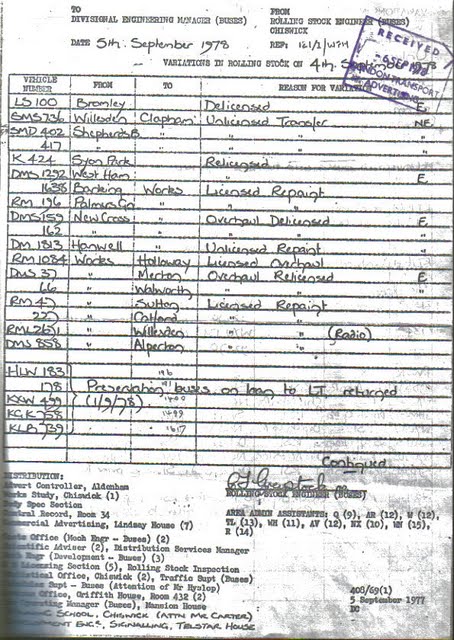 TO
FROM
DIVISIONAL ENGINEERING MANAGER (BUSES)
ROLLING STOCK ENGINEER (BUSES)
CHISWICK
DATE 5th. September 1978
REF:
RECEIVED
6 SEP 1978
LONDON TRANSPORT
ADVERTISING
VARIATIONS IN ROLLING STOCK ON 4th.
VEHICLE NUMBER FROM TO REASON FOR VARIATION
LS 100 Bromley Delicensed E
SMS 736 Willesden Clapham Unlicensed Transfer NE
SMD 402 Shepherds B. " " "
417 " " " "
K 424 Syon Park Relicensed
DMS 1292 West Ham " E
1638 Barking Works Licensed Repaint
RM 196 Palmers Gn " " "
DMS 159 New Cross " Overhaul Delicensed E
162 " " " " "
DM 1813 Hanwell " Unlicensed Repaint "
RM 1084 Works Holloway Licensed Overhaul
DMS 37 " Merton Overhaul Relicensed E
66 " Walworth " " "
RM 47 " Sutton Licensed Repaint
" Catford " "
" Willesden " " (Radio)
DMS 858 " Alperton " "
HLW 183 196
178 Presentation buses on loan to LT returned
KXW 499 (1/9/78) 1400
KGK 758 " 1499
KLB 739 " 1617
Continued
ROLLING STOCK ENGINEER (BUSES)
DISTRIBUTION:
Advert Controller, Aldenham
Works Study, Chiswick (1)
Body Spec Section
Central Record, Room 34
Commercial Advertising, Lindsey House (7)
AREA ADMIN ASSISTANTS: Q (9), AR (12), W (12),
TL (13), WH (11), AV (12), NX (10), MN (15),
R (14)
Costs Office (Mech Engr - Buses) (2)
Scientific Adviser (2), Distribution Services Manager
Engr (Development - Buses) (3)
Licensing Section (5), Rolling Stock Inspection
Office, Chiswick (2), Traffic Supt (Buses)
Supt - Buses (Attention of Mr Hyslop)
Office, Griffith House, Room 432 (2)
Operating Manager (Buses), Mansion House
SCHOOL, CHISWICK (ATTN MR CARTER)
ENG'S, SIGNALLING, TELSTAR HOUSE
408/69(1)
5 September 1977
DC